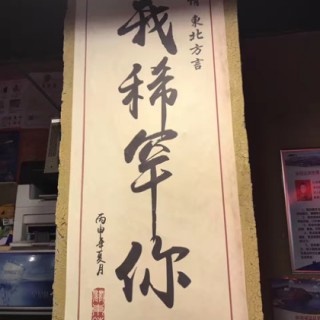 東北方言
我稀罕你
丙申年夏月